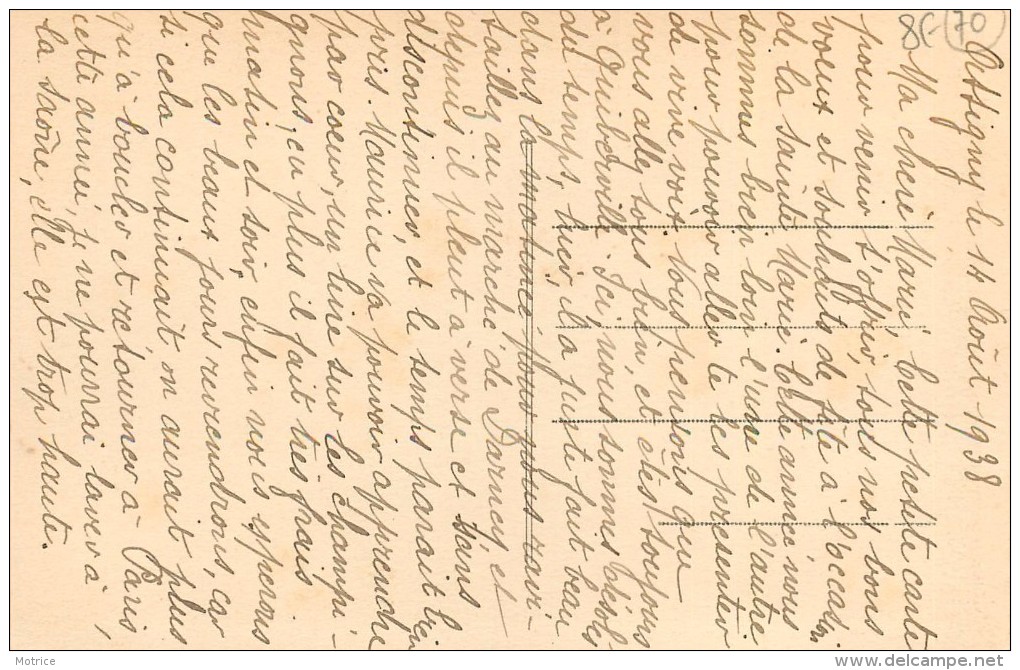 8C-(70)
Attigny le 14 Août 1938
Ma chere Marie, Cette petite carte
pour venir t'offrir, tous nos bons
voeux et souhaits de fête à l'occasion
de la Sainte Marie. Cette année nous
sommes bien loin l'une de l'autre
pour pouvoir aller te les presenter
de vive voix. Nous pensons que
vous allez tous bien, et êtes toujours
à Quiberville. Ici nous sommes désolés
du temps, hier, il a juste fait beau
dans la matinée, nous nous ravi-
taillez au marché de Darney et
depuis il pleut à verse et sans
discontinuer, et le temps parait bien
pris. Maurice va pouvoir apprendre
par coeur, un livre sur les champi-
gnons, en plus il fait très frais
matin et soir, enfin nous esperons
que les beaux jours reviendrons, car
si cela continuait on aurait plus
qu'à boucler et retourner à Paris,
cette année, je ne pourrai laver à
la saône, Elle est trop haute.
Motrice
delcampe.net